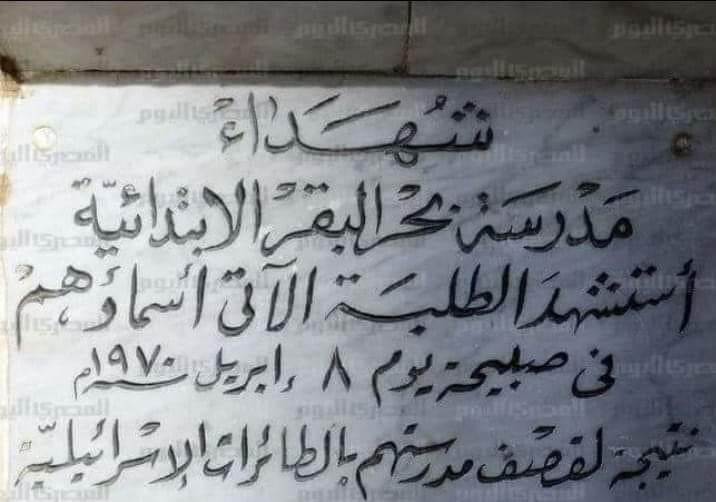 شُهَدَاء
مَدْرسَة بَحْر البقرْ الابتدائيّة
أستشهدَ الطلبَة الآتى أسماؤهم
فى صبيحة يوم ٨ ابريل سنة ١٩٧٠م
نتيجة لقصف مدرستهم بالطائرات الإسرائيليّة
المصري اليوم